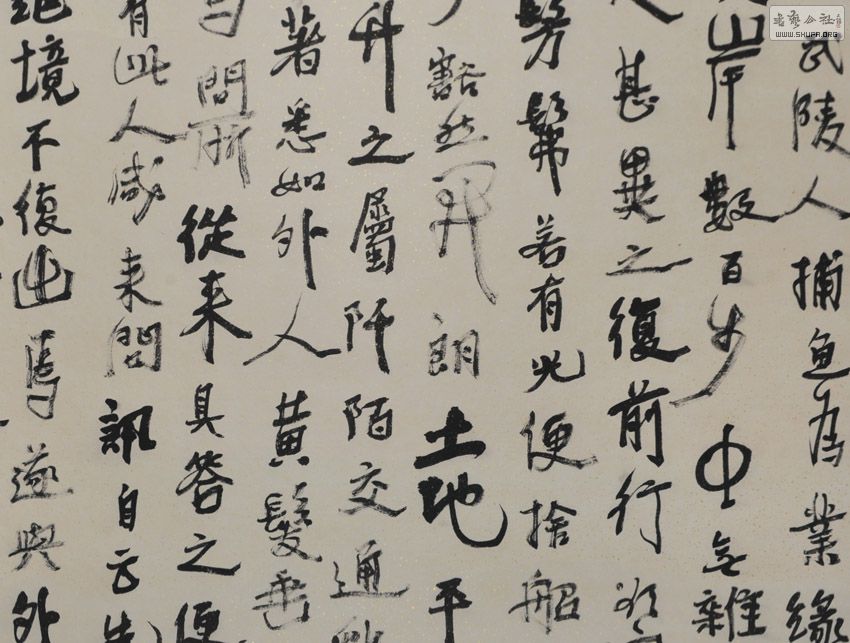 武陵人捕魚為業緣
岸數百步中無雜
甚異之復前行欲
髣髴若有光便捨船
豁然開朗土地平
竹之屬阡陌交通
著悉如外人黃髮垂
問所從來具答之便
有此人咸来問訊自云先
絶境不復出焉遂與外
書藝公社
WWW.SHUFA.ORG